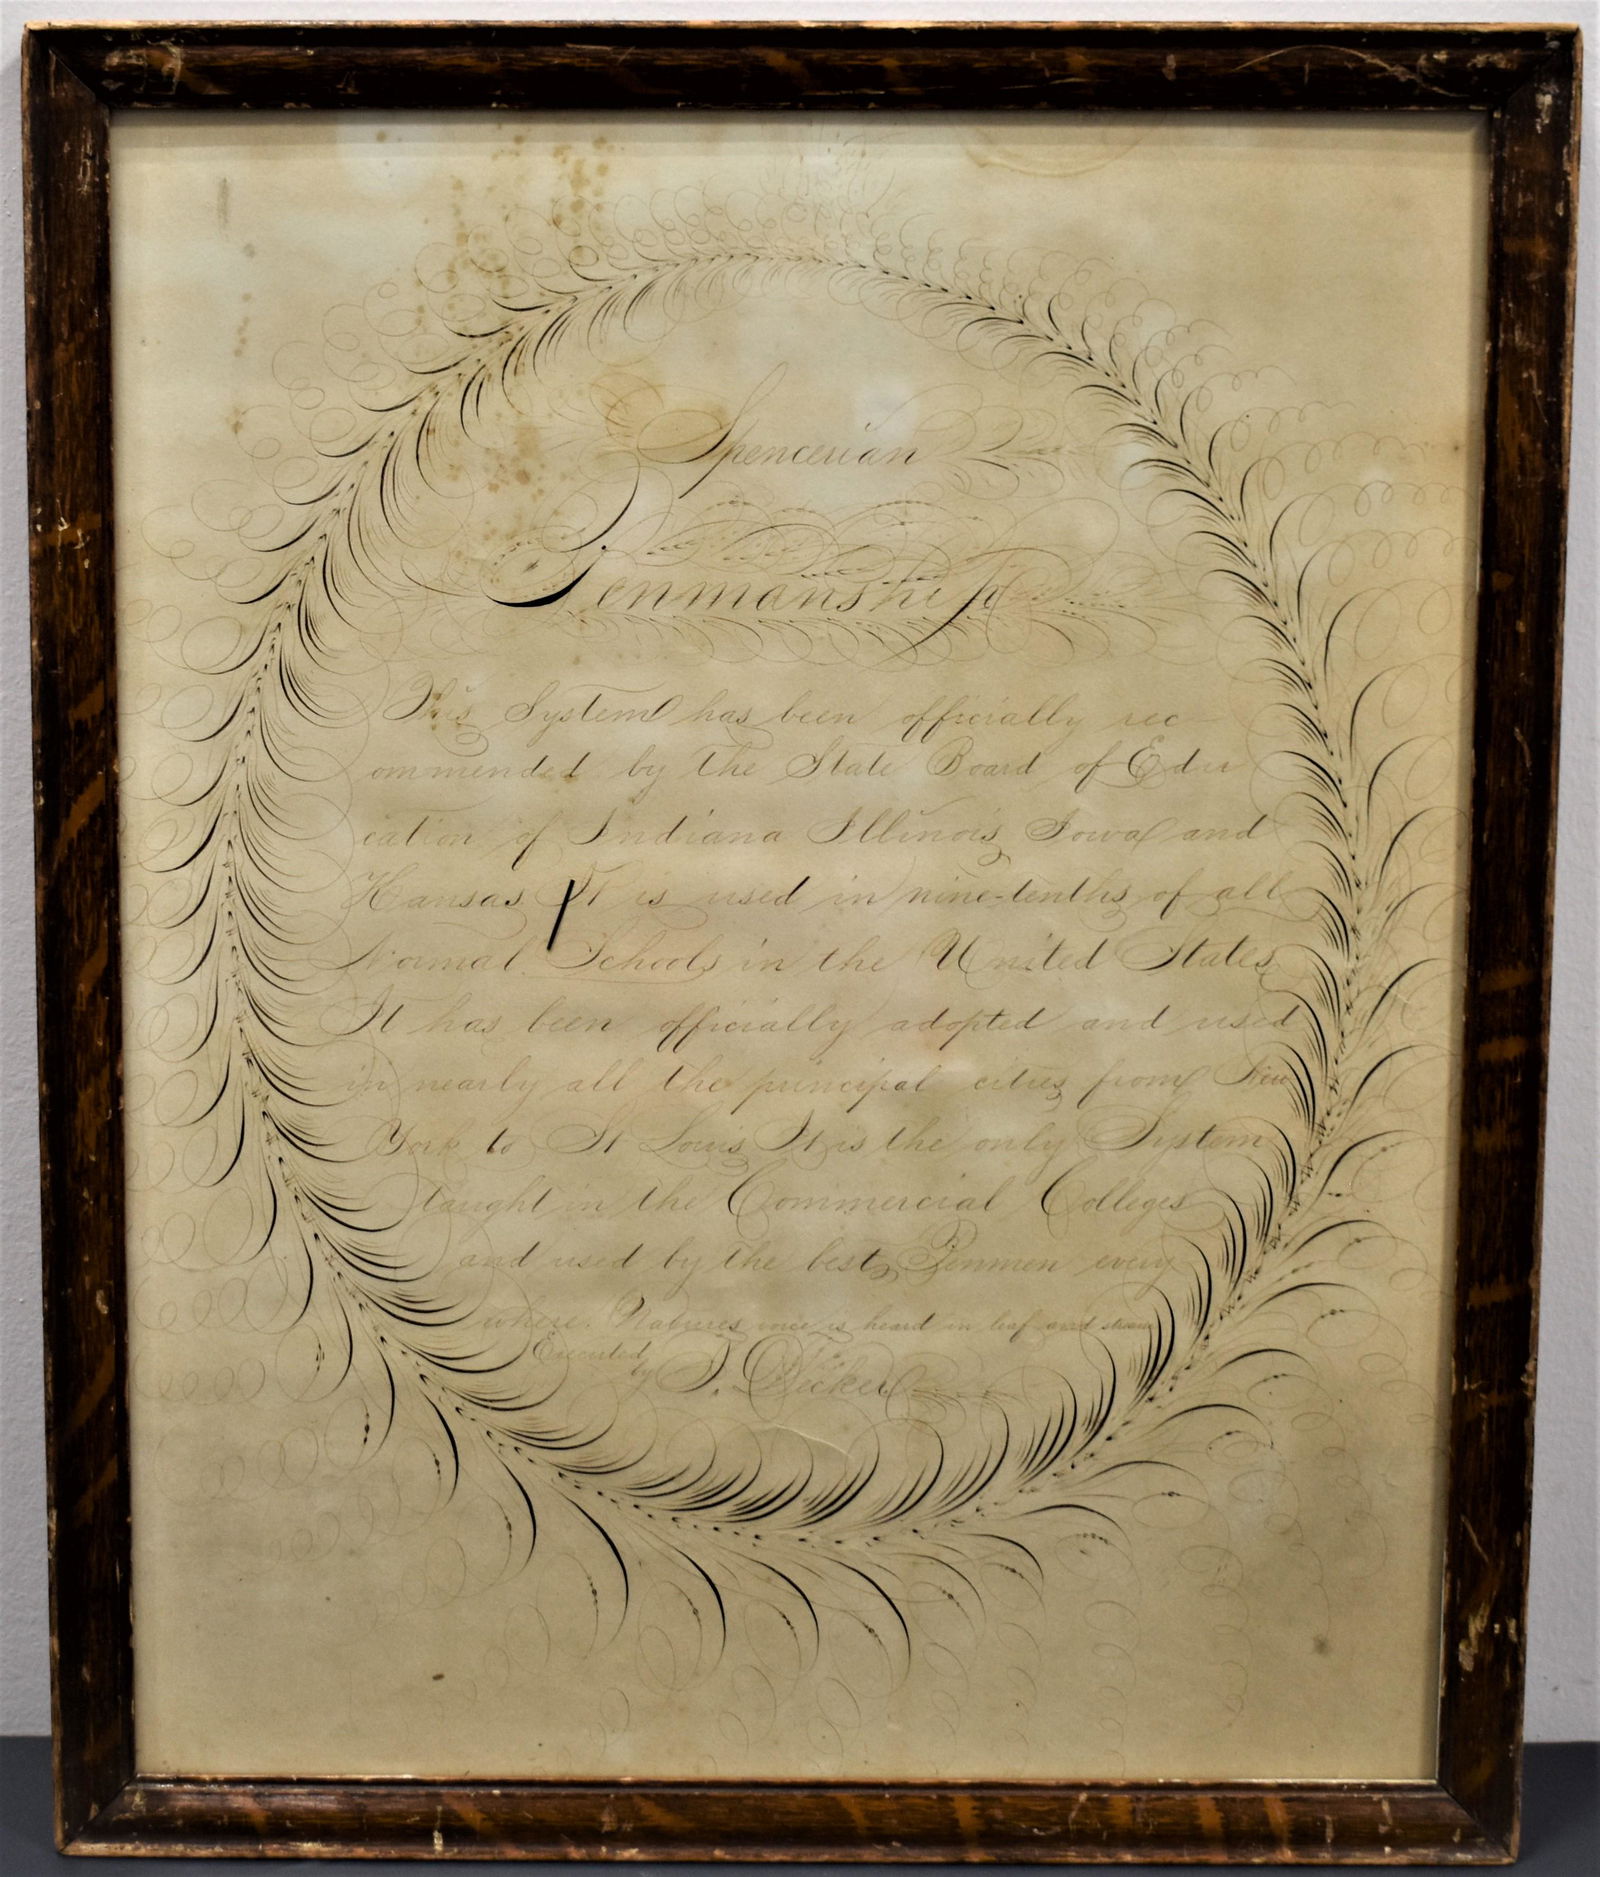 Spencerian
Penmanship
This System has been officially rec-
ommended by the State Board of Edu
cation of Indiana Illinois Iowa and
Kansas It is used in nine-tenths of all
Normal Schools in the United States
It has been officially adopted and used
in nearly all the principal cities from New
York to St Louis It is the only System
taught in the Commercial Colleges
and used by the best Penmen every
where. Natures voice is heard in leaf and stream
Executed
by J. Decker